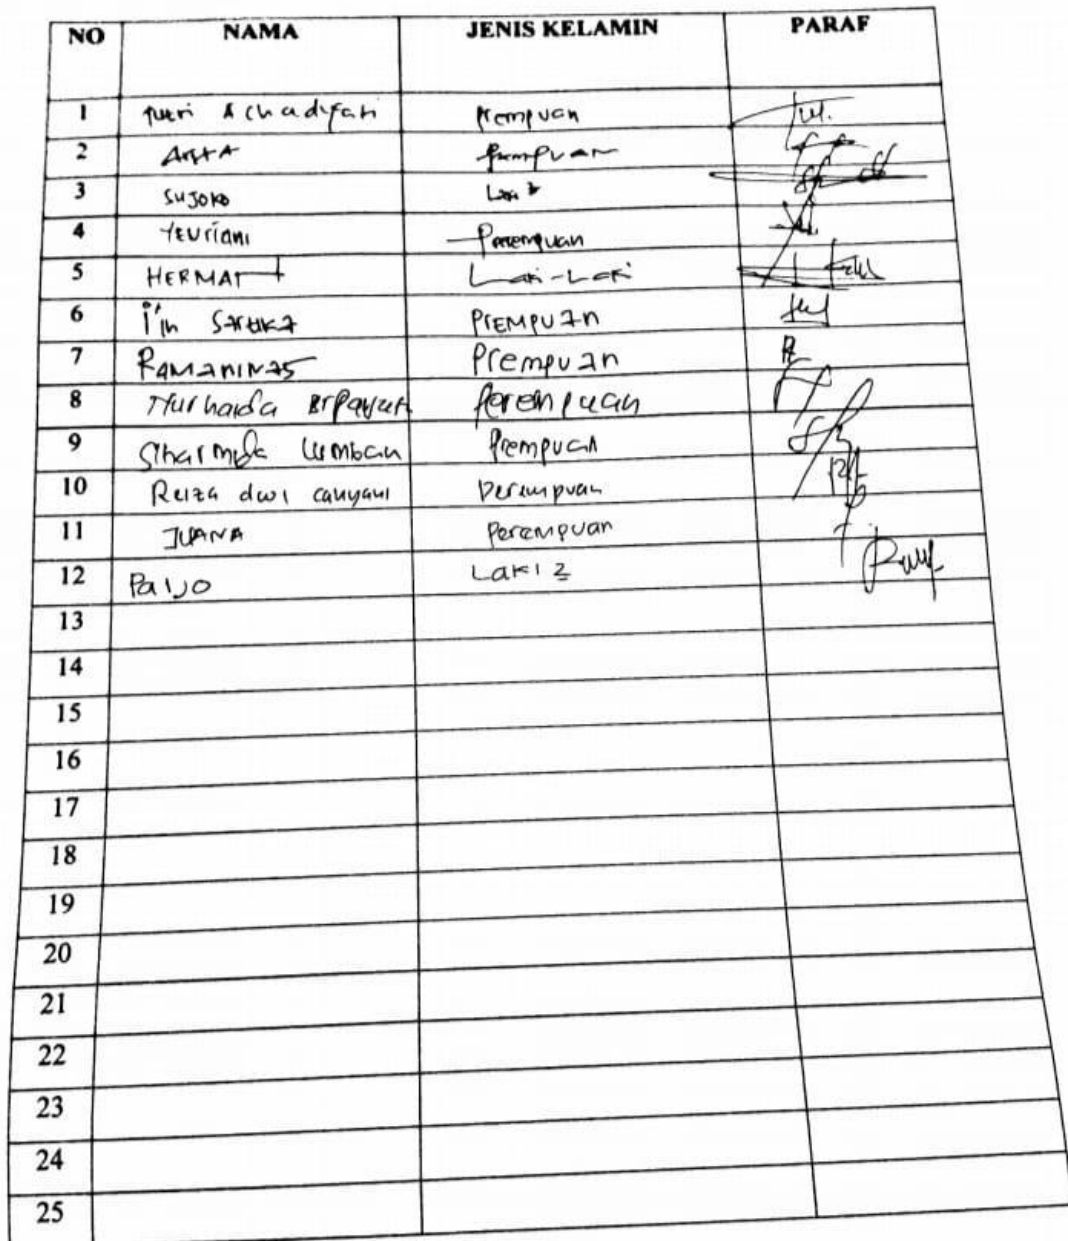 NO NAMA JENIS KELAMIN PARAF
1 Putri Prempuan
2 Perempuan
3 SUJOKO Laki 2
4 Yeuriani Perempuan
5 HERMAT Laki-Laki
6 i'in Sartika PrEMPUan
7 Prempuan
8 Nurhaida Perempuan
9 Lumban Prempuan
10 Reiza dwi cahyani Perempuan
11 JUANA Perempuan
12 PaiJO Laki 2
13
14
15
16
17
18
19
20
21
22
23
24
25